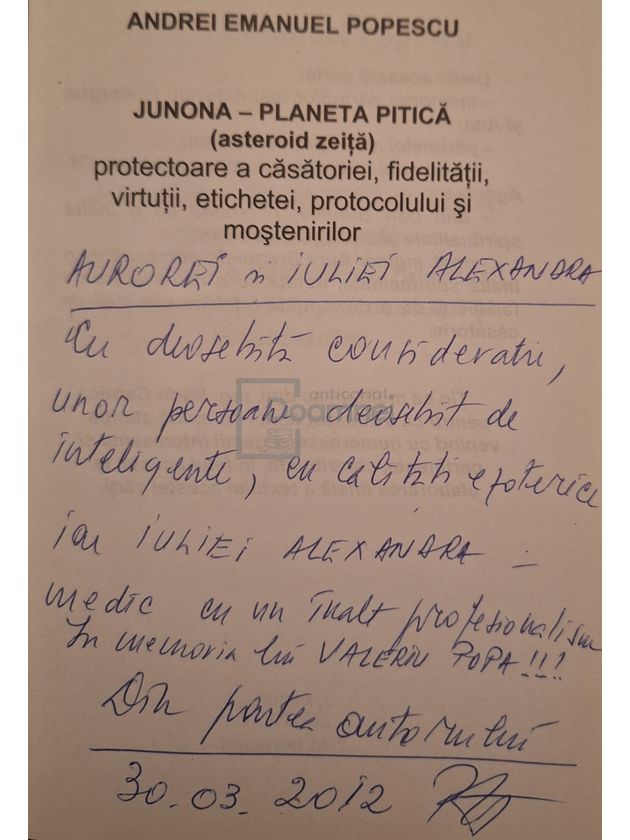 ANDREI EMANUEL POPESCU
JUNONA – PLANETA PITICĂ
(asteroid zeiţă)
protectoare a căsătoriei, fidelităţii,
virtuţii, etichetei, protocolului şi
moştenirilor
AUROREI și IULIEI ALEXANDRA
Cu deosebită considerație,
unor persoane deosebit de
inteligente, cu calități ezoterice
iar IULIEI ALEXANDRA –
medic cu un înalt profesionalism
În memoria lui VALERIU POPA!!!
Din partea autorului
30.03.2012
anticariat
Doamnei